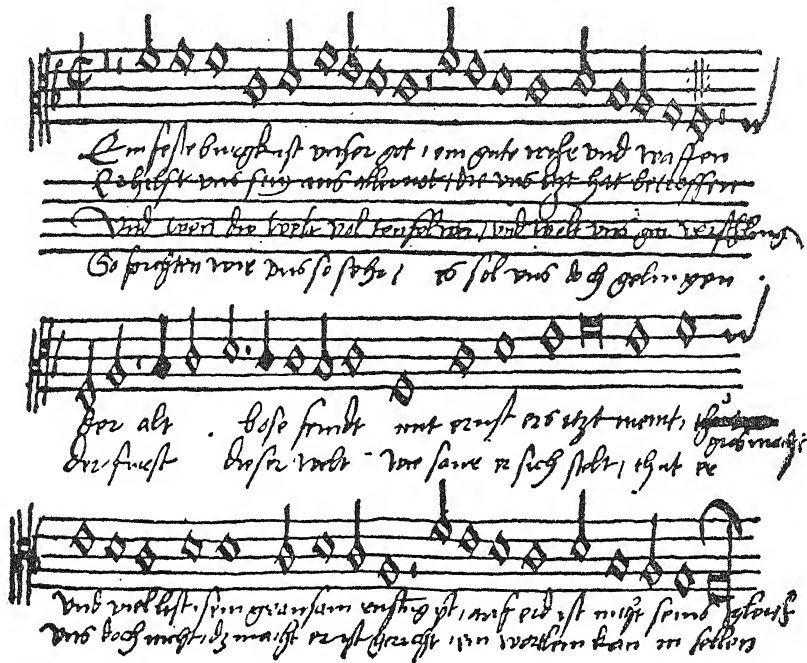 Ein feste burgk ist unser got, ein gute wehr und waffen
Er hilfft uns frey aus aller not, die uns itzt hat betroffen
Und wen die welt vol teuffel wer, und wolt uns gar verschling
So furchten wir uns so sehr, es sol uns doch gelingen.
der alt bose feindt mit ernst ers itzt meint,
gros macht
der furst dieser welt wie saur er sich stelt, thut er
und viel list, sein grausam rustug ist, auf erd ist nicht seins gleich
uns doch nicht, dz macht er ist gericht, ein wortlein kan in fellen